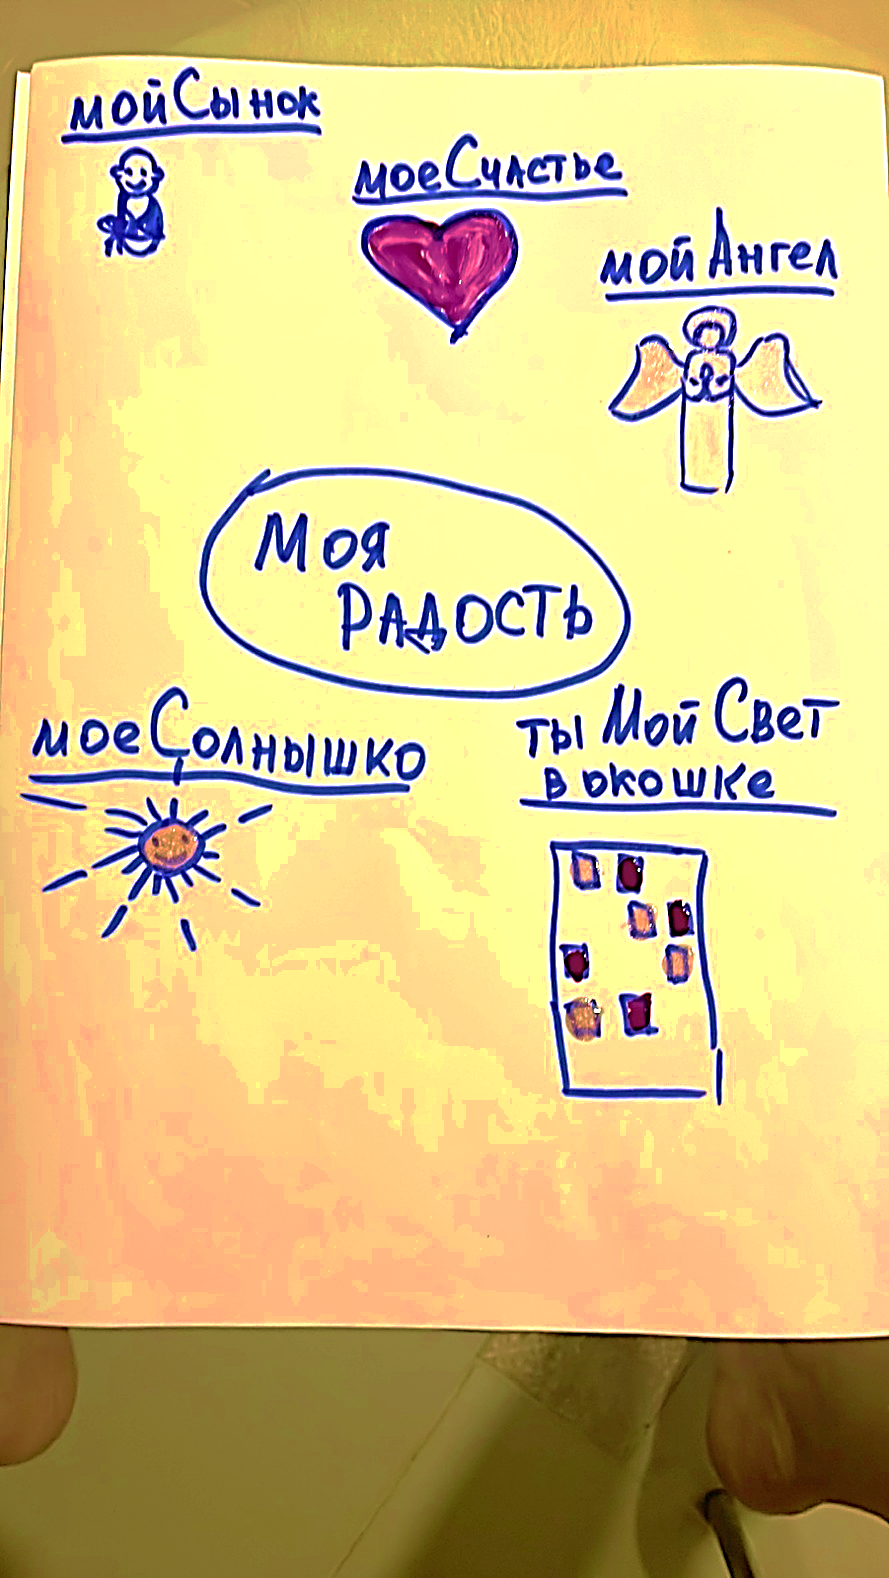 мой Сынок
мое Счастье
мой Ангел
Моя
РАДОСТЬ
мое Солнышко
ты Мой Свет
в окошке